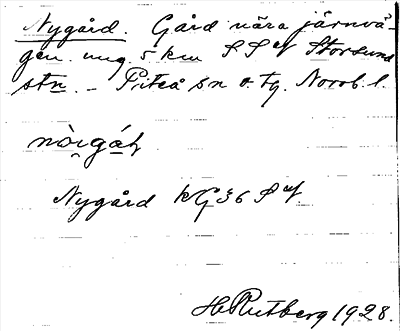 Nygård. Gård nära järnvä-
gen. ung. 5 km SSV Storsund
stn. – Piteå sn o. tg. Norrb. l.
Nygård kG 36 SV.
H. Rutberg 1928.